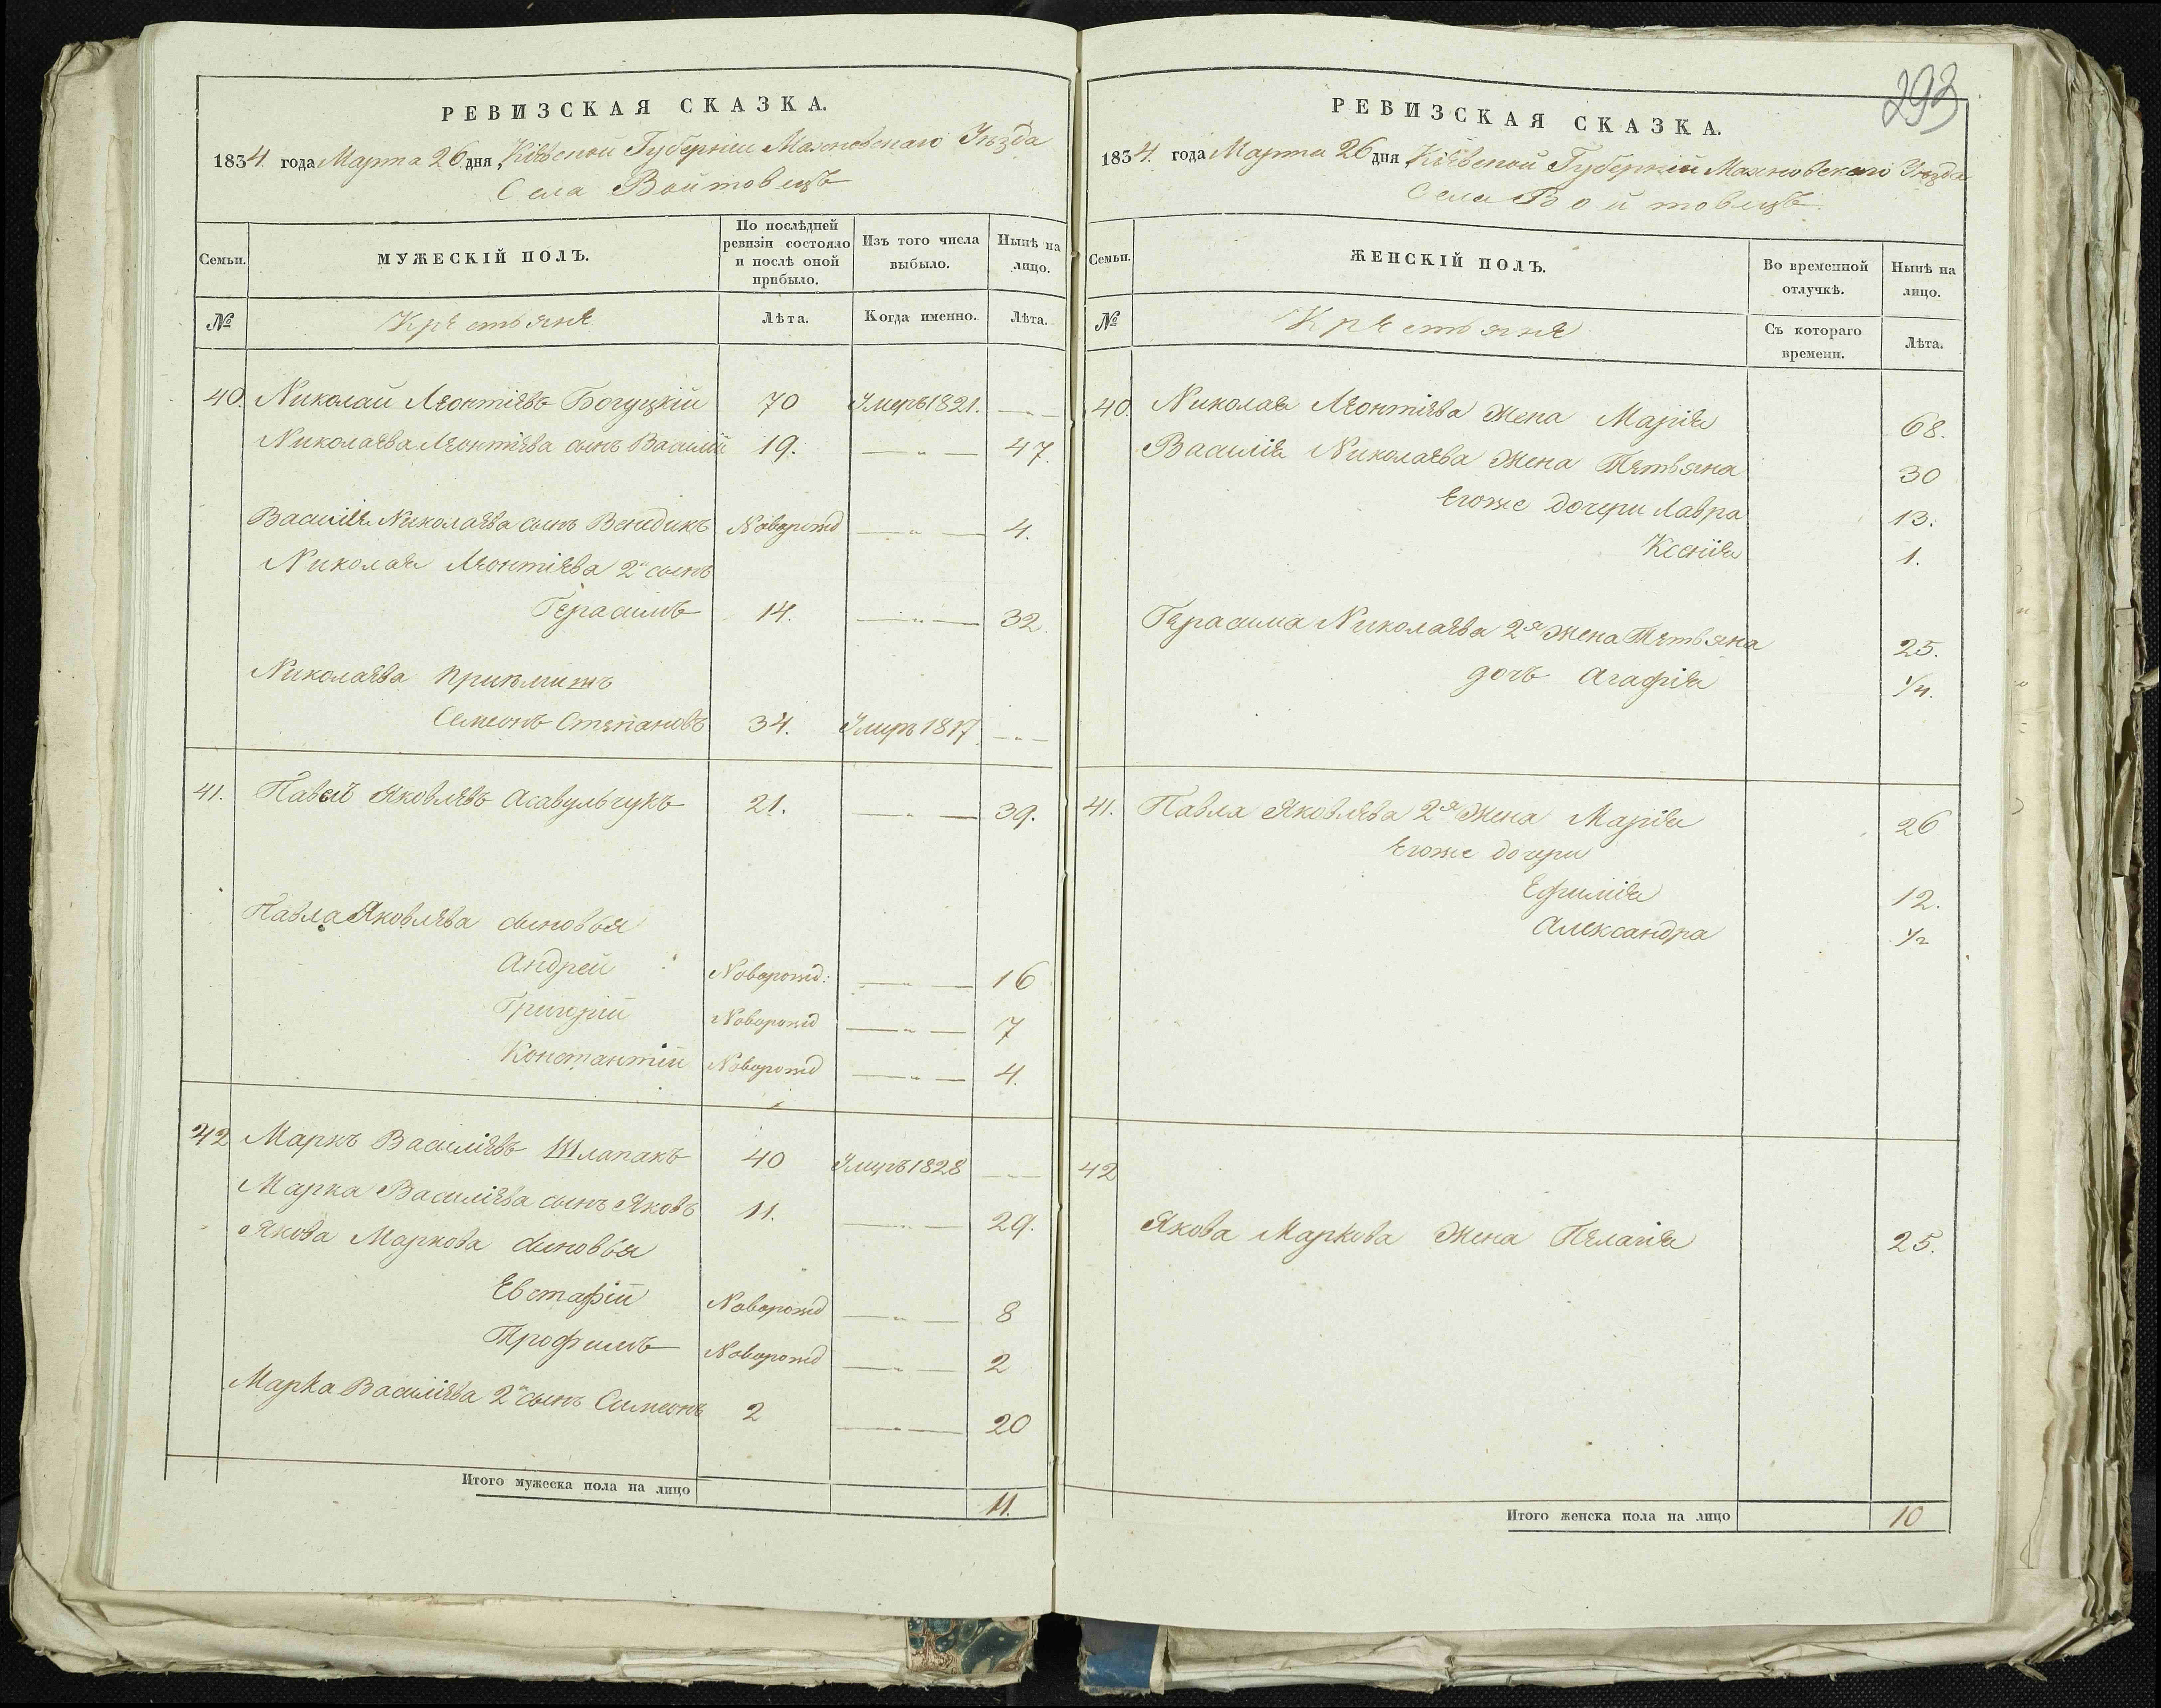 РЕВИЗСКАЯ СКАЗКА.
1834. года Марта 26 дня, Кіевской Губерніи Махновскаго Уѣзда
Села Войтовецъ
Семьи.
МУЖЕСКІЙ ПОЛЪ.
По послѣдней ревизіи состояло и послѣ оной прибыло.
Изъ того числа выбыло.
Нынѣ на лицо.
№
Крестьяне
Лѣта.
Когда именно.
Лѣта.
40. Николай Леонтіевъ Богуцкій 70 Умеръ 1821. — „ —
Николаева Леонтіева сынъ Василій 19. — „ — 47.
Василія Николаева сынъ Венидикъ Новорожд — „ — 4.
Николая Леонтіева 2й сынъ
Герасимъ 14. — „ — 32.
Николаева приемишъ
Семеонъ Степановъ 34. Умеръ 1817. — „ —
41. Павелъ Яковлевъ Асавульчукъ 21. — „ — 39.
Павла Яковлева сыновья
Андрей Новорожд: — „ — 16
Григорій Новорожд — „ — 7
Константій Новорожд — „ — 4.
42 Маркъ Василіевъ Шлапакъ 40 Умеръ 1828 — „ —
Марка Василіева сынъ Яковъ 11. — „ — 29.
Якова Маркова сыновья
Евстафій Новорожд — „ — 8
Трофимъ Новорожд — „ — 2
Марка Василіева 2й сынъ Симеонъ 2 — „ — 20
Итого мужеска пола на лицо 11.
293
РЕВИЗСКАЯ СКАЗКА.
1834. года Марта 26 дня, Кіевской Губерніи Махновскаго Уѣзда
Села Войтовецъ.
Семьи.
ЖЕНСКІЙ ПОЛЪ.
Во временной отлучкѣ.
Нынѣ на лицо.
№
Крестьяне
Съ котораго времени.
Лѣта.
40. Николая Леонтіева жена Марія 68.
Василія Николаева жена Тетьяна 30
Егоже дочери Лавра 13.
Ксенія 1.
Герасима Николаева 2я жена Тетьяна 25.
дочь Агафія 1/4.
41. Павла Яковлева 2я жена Марія 26
Егоже дочери
Ефимія 12.
Александра 1/2
42
Якова Маркова жена Пелагія 25.
Итого женска пола на лицо 10